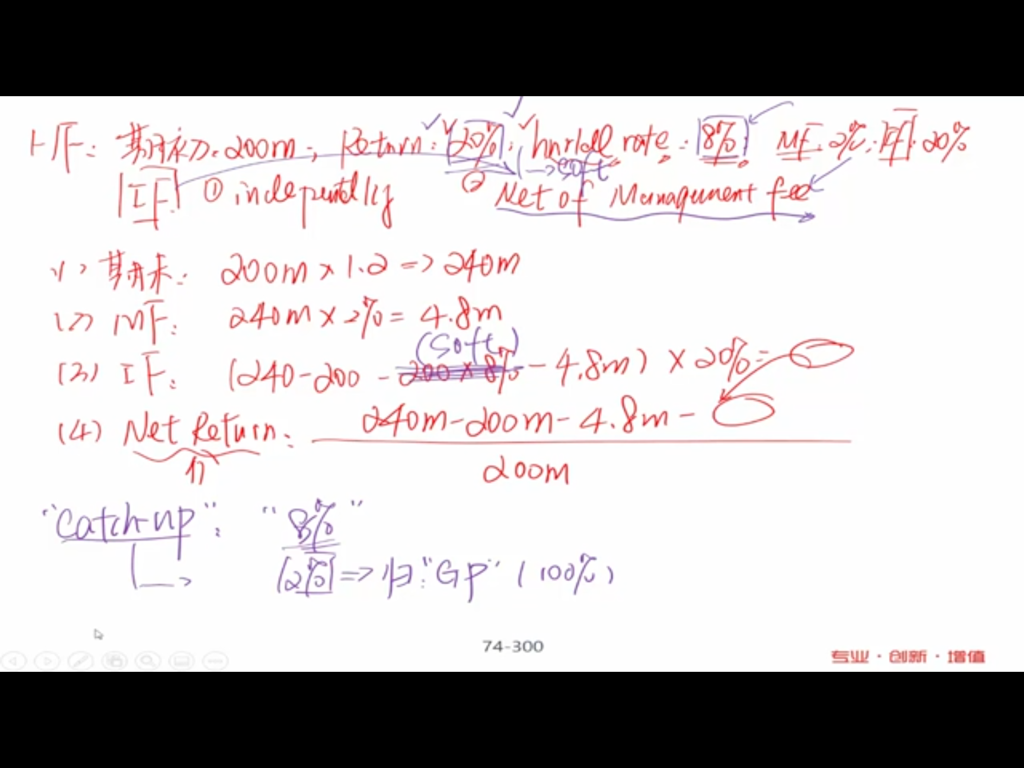 HF: 期初: 200m; Return: 20%; hurdle rate: 8%; MF: 2%; PF: 20%
→soft
IF ① independently ② Net of Management fee
(1) 期末: 200m × 1.2 => 240m
(2) MF: 240m × 2% = 4.8m
(soft)
(3) IF: (240-200 - 200 × 8% - 4.8m) × 20% =
(4) Net Return: 240m-200m-4.8m -
200m
"catch-up": "8%"
2% => 归: "GP" (100%)
74-300
专业·创新·增值